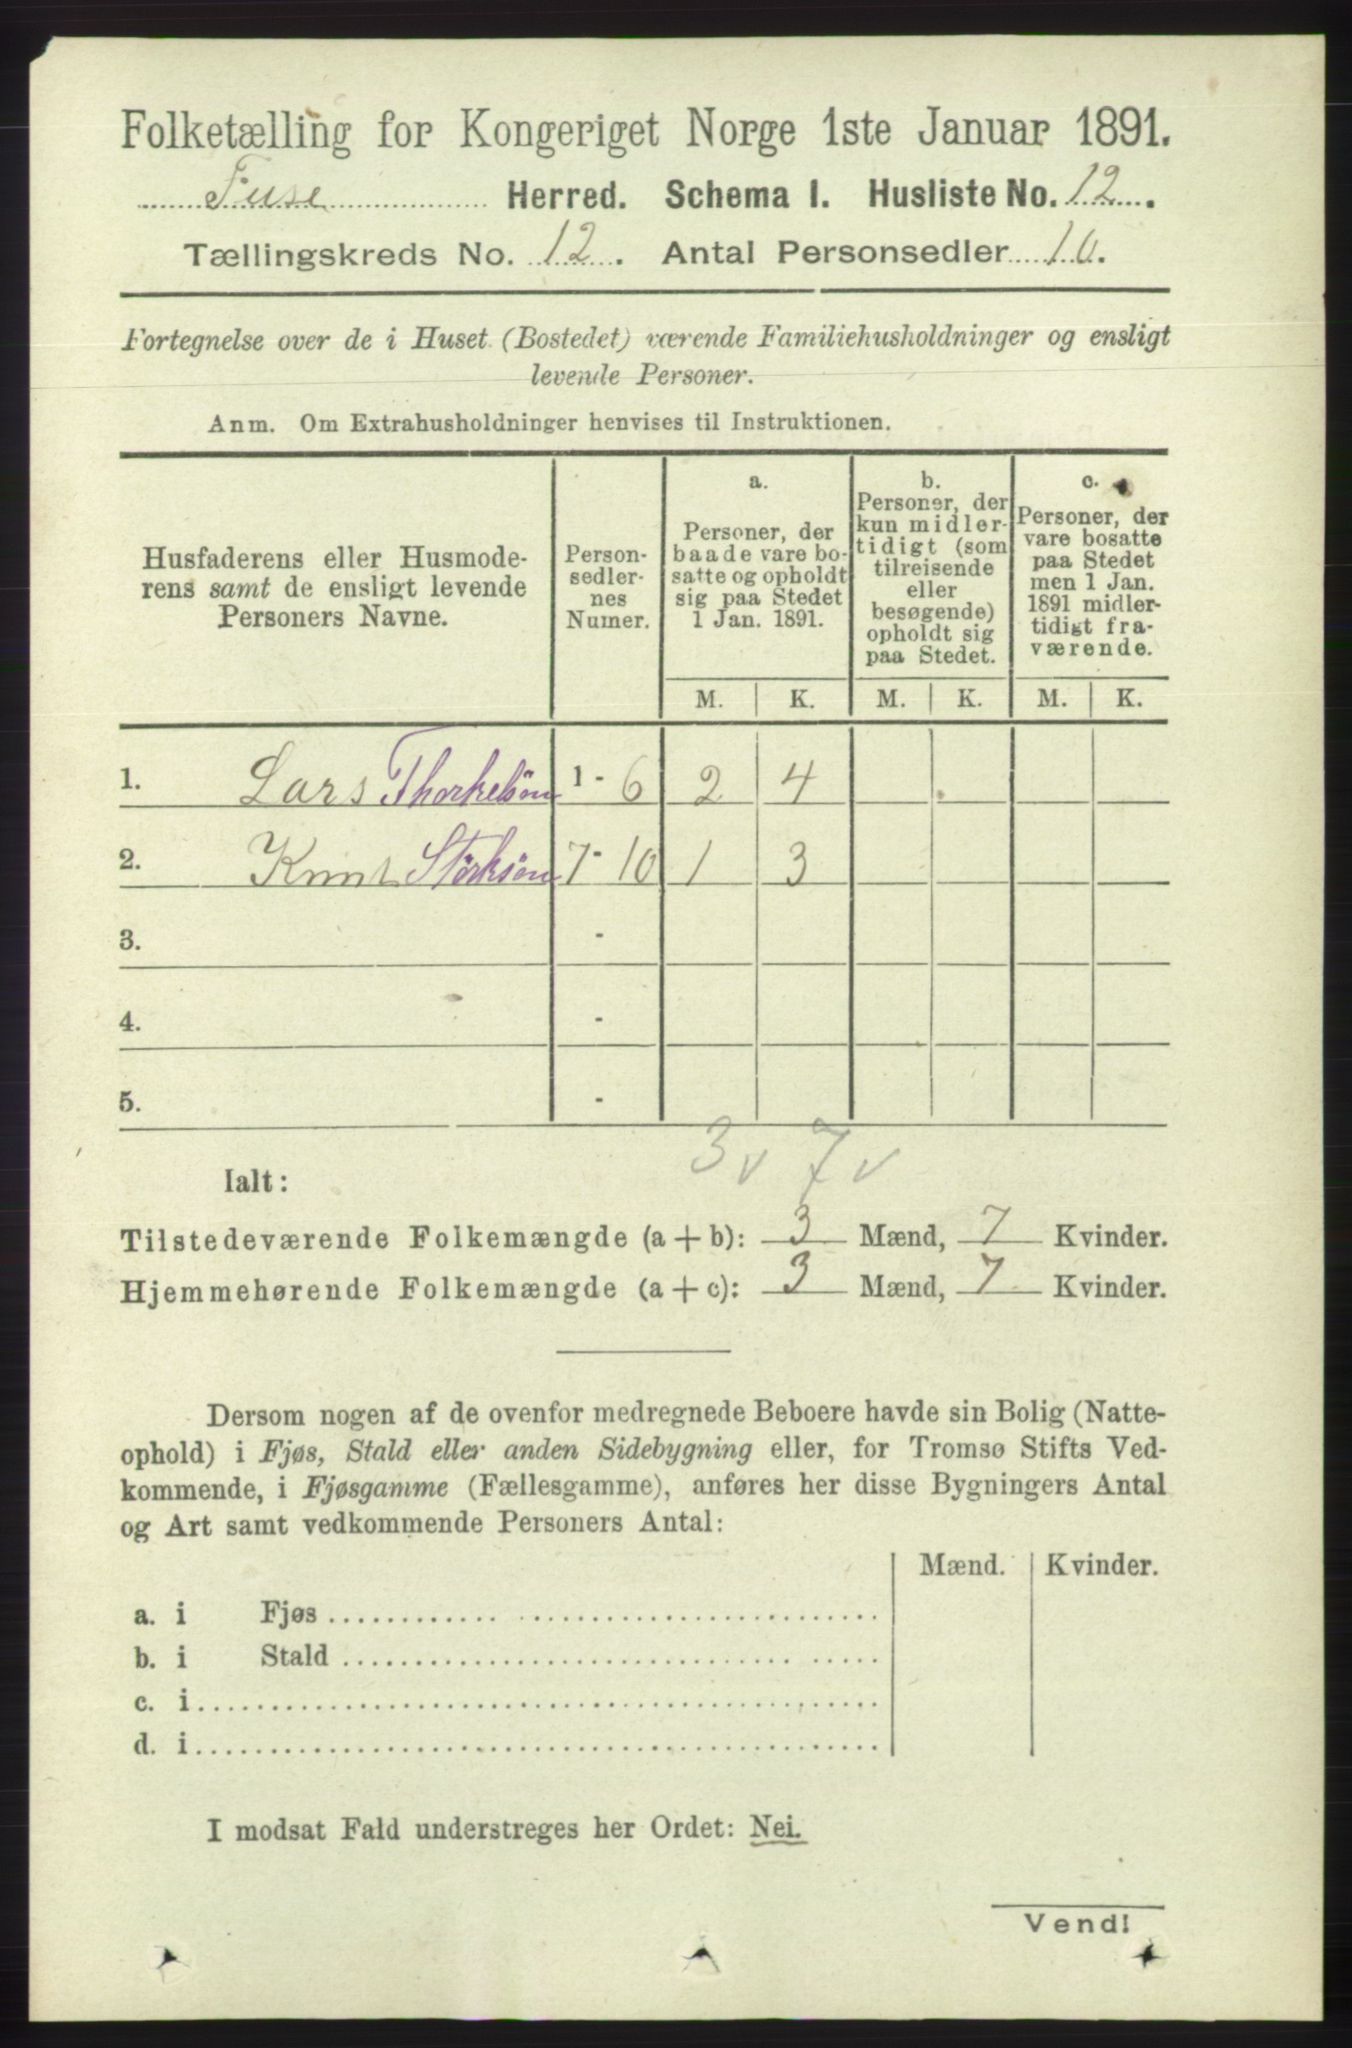 Folketælling for Kongeriget Norge 1ste Januar 1891.
Fuse Herred. Schema I. Husliste No. 12.
Tællingskreds No. 12. Antal Personsedler 10.
Fortegnelse over de i Huset (Bostedet) værende Familiehusholdninger og ensligt
levende Personer.
Anm. Om Extrahusholdninger henvises til Instruktionen.
Husfaderens eller Husmode-
rens samt de ensligt levende
Personers Navne.
Person-
sedler-
nes
Numer.
a.
Personer, der
baade vare bo-
satte og opholdt
sig paa Stedet
1 Jan. 1891.
b.
Personer, der
kun midler-
tidigt (som
tilreisende
eller
besøgende)
opholdt sig
paa Stedet.
c.
Personer, der
vare bosatte
paa Stedet
men 1 Jan.
1891 midler-
tidigt fra-
værende.
M. K. M. K. M. K.
1. Lars Thorkelsön 1 - 6 2 4
2. Knut Störksön 7 - 10 1 3
3. -
4. -
5. -
3 v 7 v
Ialt:
Tilstedeværende Folkemængde (a + b): 3 Mænd, 7 Kvinder.
Hjemmehørende Folkemængde (a + c): 3 Mænd, 7 Kvinder.
Dersom nogen af de ovenfor medregnede Beboere havde sin Bolig (Natte-
ophold) i Fjøs, Stald eller anden Sidebygning eller, for Tromsø Stifts Ved-
kommende, i Fjøsgamme (Fællesgamme), anføres her disse Bygningers Antal
og Art samt vedkommende Personers Antal:
Mænd. Kvinder.
a. i Fjøs
b. i Stald
c. i
d. i
I modsat Fald understreges her Ordet: Nei.
Vend!